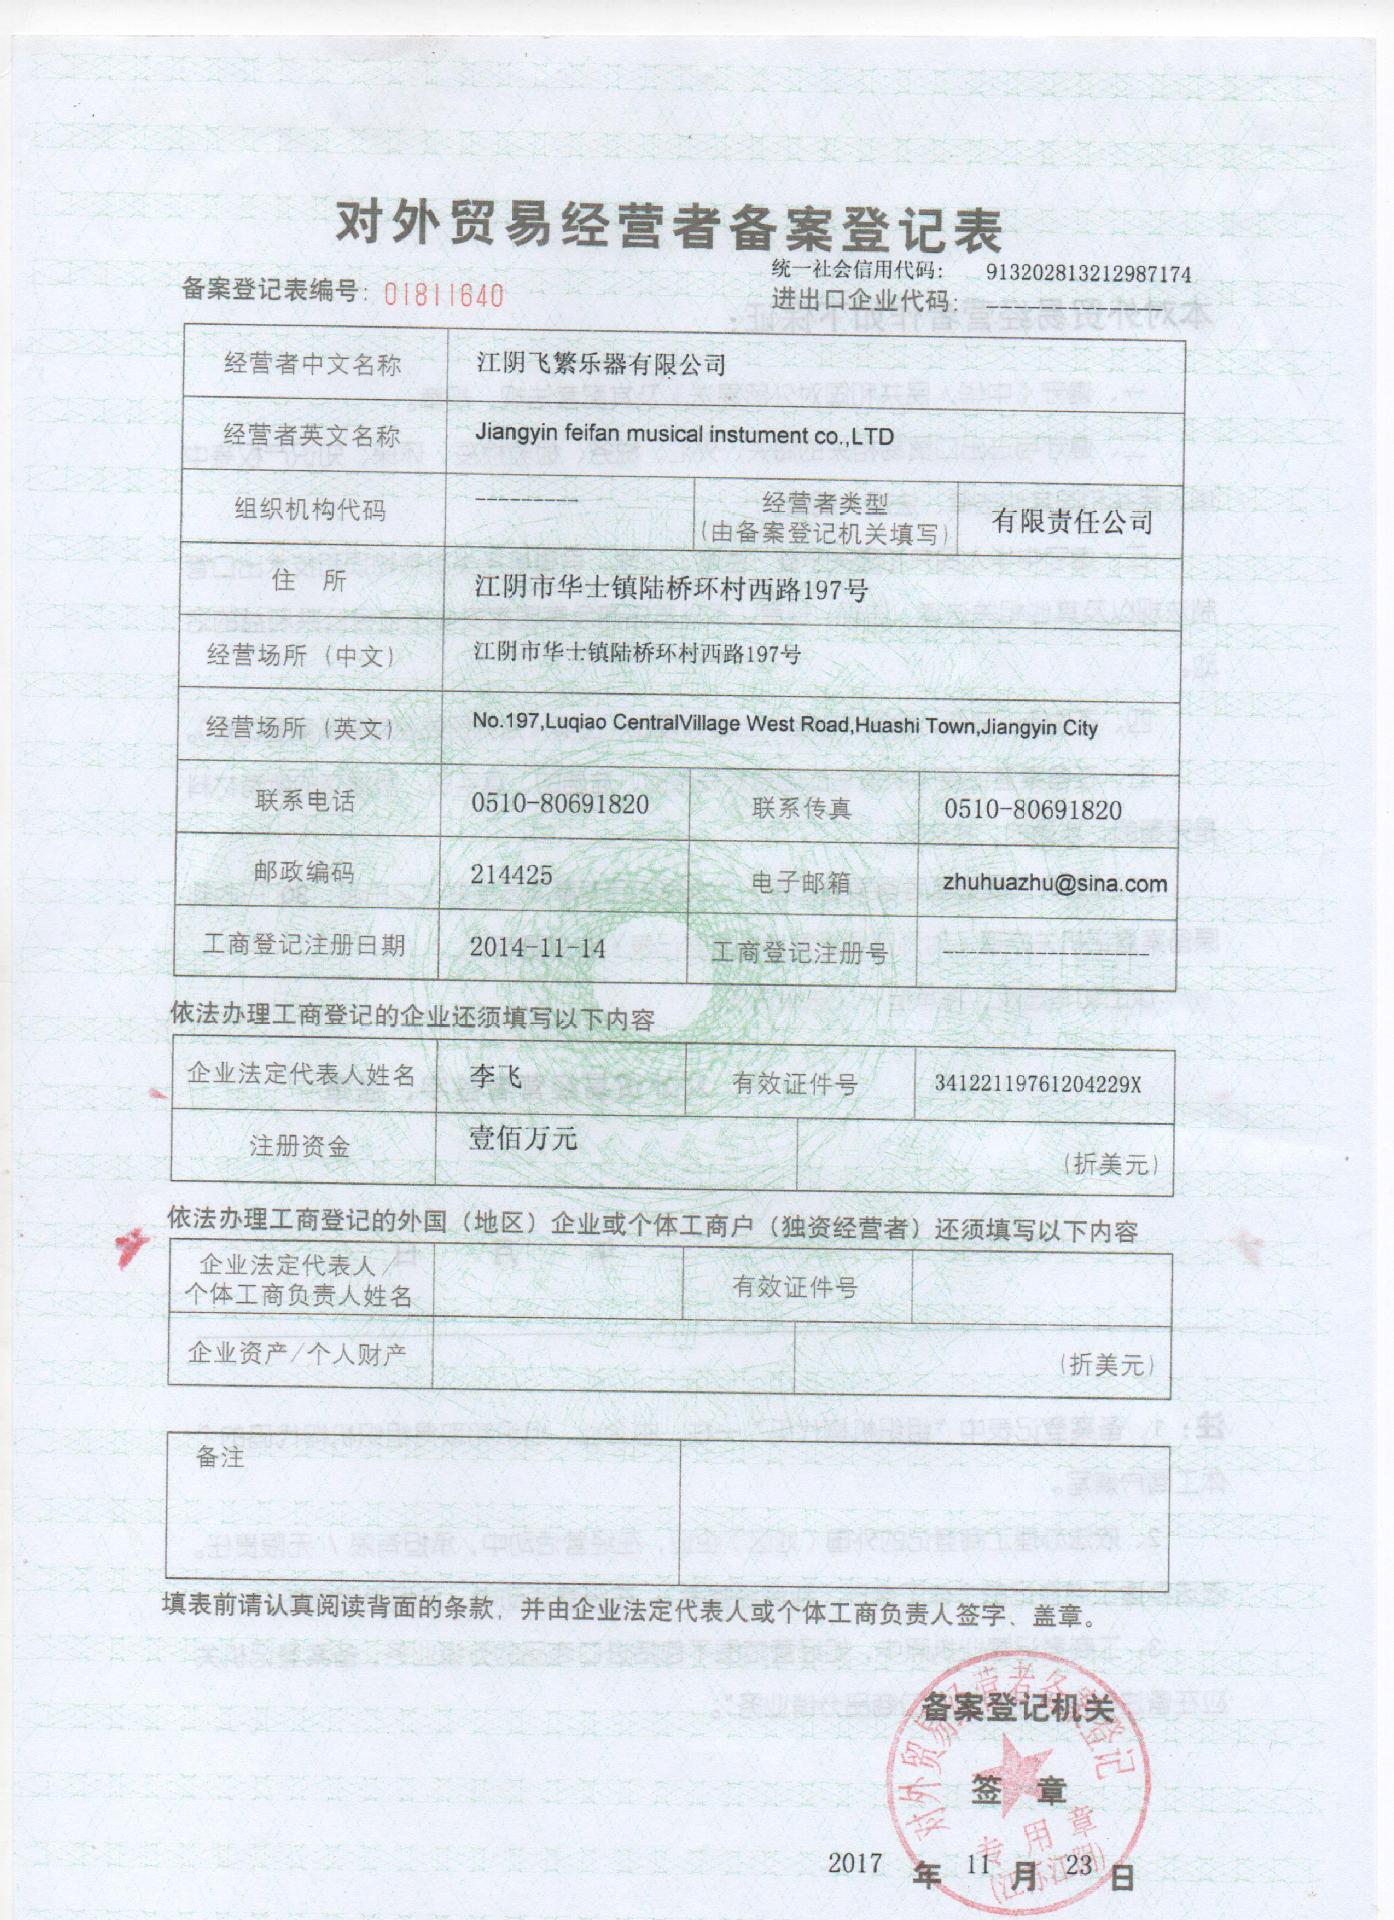 对外贸易经营者备案登记表
统一社会信用代码： 913202813212987174
备案登记表编号：01811640
进出口企业代码：-----------------
经营者中文名称 江阴飞繁乐器有限公司
经营者英文名称 Jiangyin feifan musical instument co.,LTD
组织机构代码 --------- 经营者类型 (由备案登记机关填写) 有限责任公司
住 所 江阴市华士镇陆桥环村西路197号
经营场所（中文） 江阴市华士镇陆桥环村西路197号
经营场所（英文） No.197,Luqiao CentralVillage West Road,Huashi Town,Jiangyin City
联系电话 0510-80691820 联系传真 0510-80691820
邮政编码 214425 电子邮箱 zhuhuazhu@sina.com
工商登记注册日期 2014-11-14 工商登记注册号 -------------------
依法办理工商登记的企业还须填写以下内容
企业法定代表人姓名 李飞 有效证件号 34122119761204229X
注册资金 壹佰万元 (折美元)
依法办理工商登记的外国（地区）企业或个体工商户（独资经营者）还须填写以下内容
企业法定代表人/
个体工商负责人姓名 有效证件号
企业资产/个人财产 (折美元)
备注
填表前请认真阅读背面的条款，并由企业法定代表人或个体工商负责人签字、盖章。
备案登记机关
签 章
对外贸易经营者备案登记
专用章
(江苏江阴)
2017 年 11 月 23 日